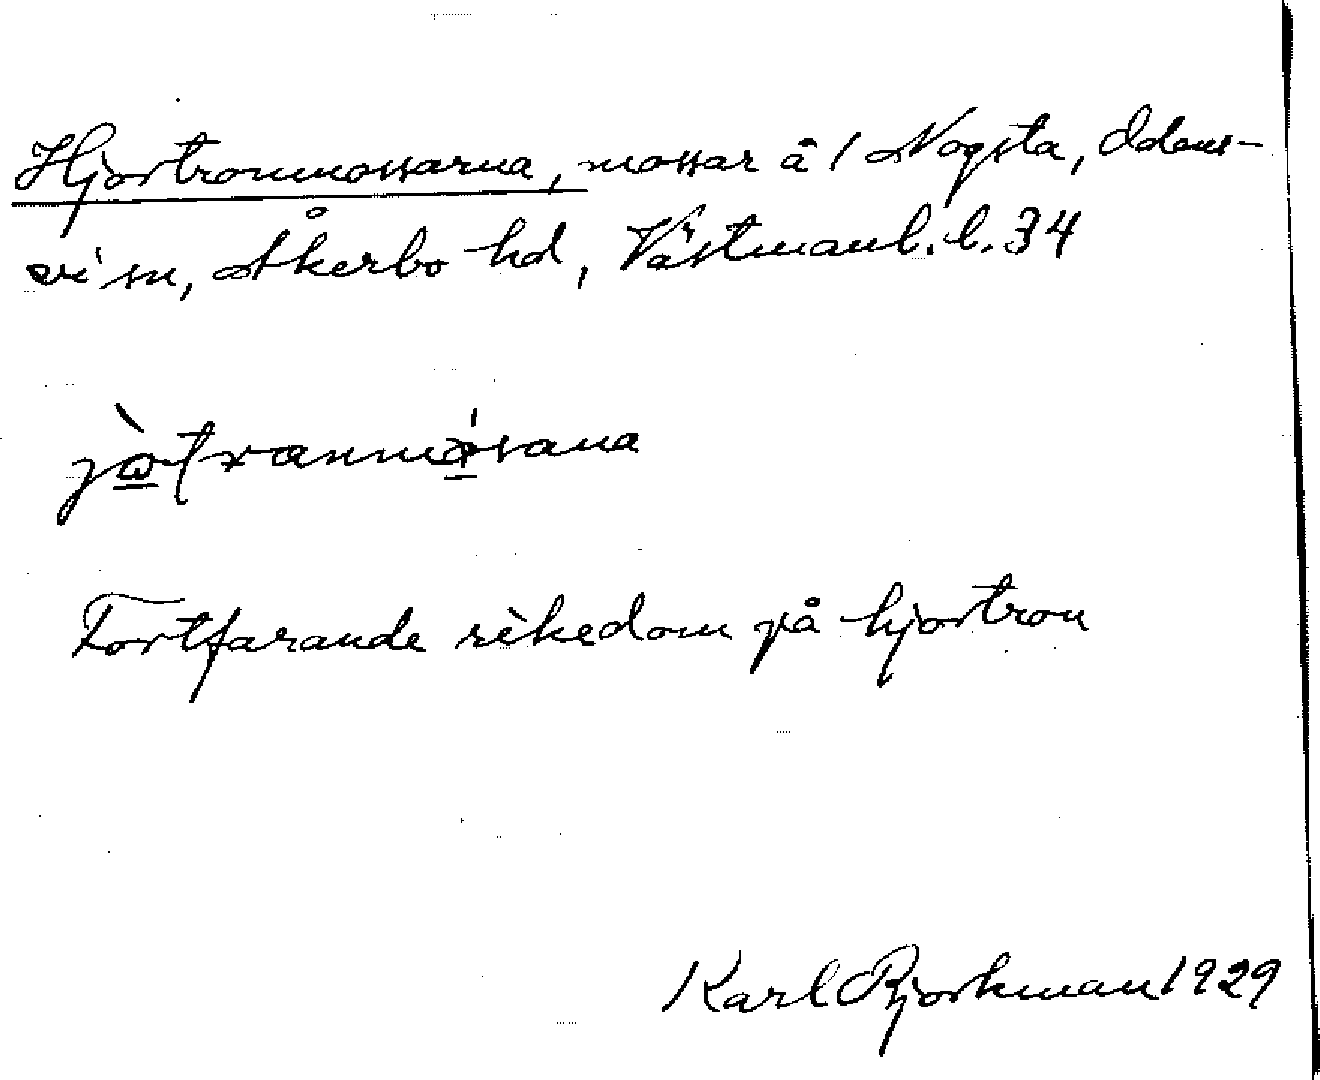 Hjortronmossarna, mossar å 1 Nogsta, Odens-
vi sn, Åkerbo hd, Västmanl. l. 34
Fortfarande rikedom på hjortron
Karl Bjorkman 1929